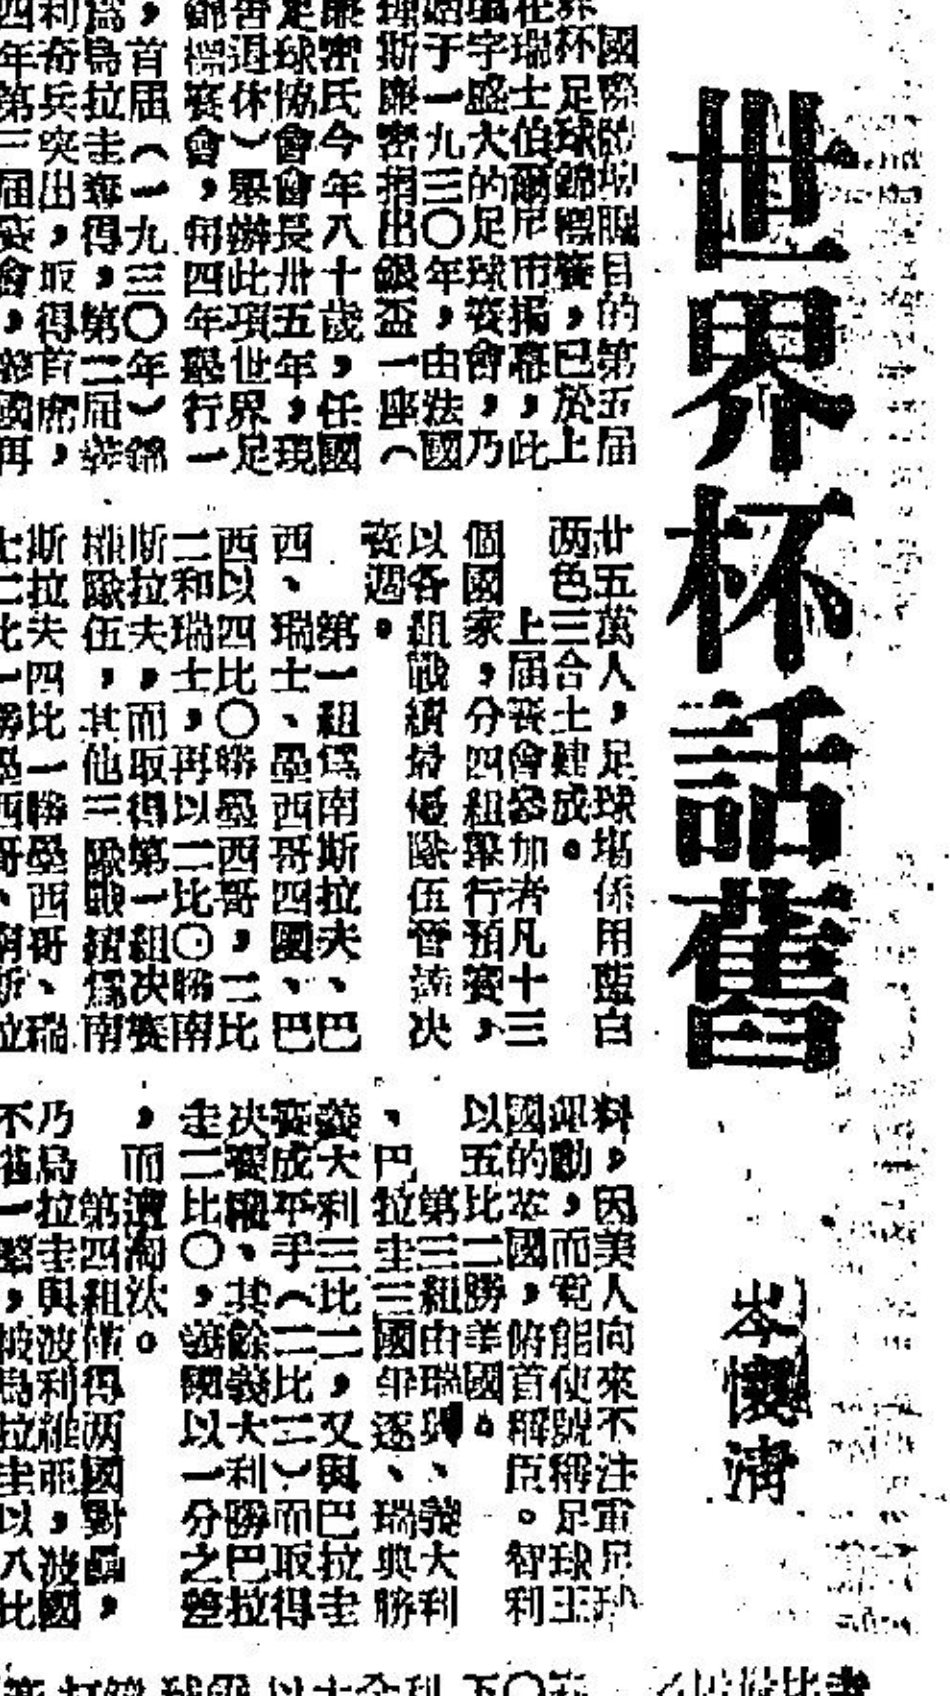 世界杯話舊
岑懷清
國際體壇矚目的第五屆
杯足球錦標賽，已於上
在瑞士伯爾尼市揭幕，此
字盛大的足球賽會，乃
始于一九三〇年，由法國
理斯廉密捐出銀盃一座（
廉密氏今年八十歲，任國
足球協會會長卅五年，現
退休）舉辦此項世界足
錦標賽會，每四年舉行一
，首屆（一九三〇年）錦
爲烏拉圭奪得，第二屆義
利奇兵突出，取得首席，
四年第三屆賽會，義國再
廿五萬人，足球場係用藍白
两色三合土建成。
上屆賽會參加者凡十三
個國家，分四組舉行預賽，
以各組戰績最優隊伍晉達决
賽週。
第一組爲南斯拉夫、巴
西、瑞士、墨西哥四國、巴
西以四比〇勝墨西哥，二比
二和瑞士，再以二比〇勝南
斯拉夫，而取得第一組决賽
權隊伍，其他三隊戰績爲南
斯拉夫四比一勝墨西哥、瑞
士二比一勝墨西哥、南斯拉
料，因美人向來不注重足球
運動，而竟能使號稱足球王
國的英國，俯首稱臣。智利
以五比二勝美國。
第三組由瑞典、義大利
、巴拉圭三國爭逐、瑞典勝
義大利三比二，又與巴拉圭
賽成平手（二比二）而取得
决賽權、其餘義大利勝巴拉
圭二比〇，義國以一分之差
，而遭淘汰。
第四組僅得两國對壘，
乃烏拉圭與波利維亞，波國
不堪一擊，被烏拉圭以八比